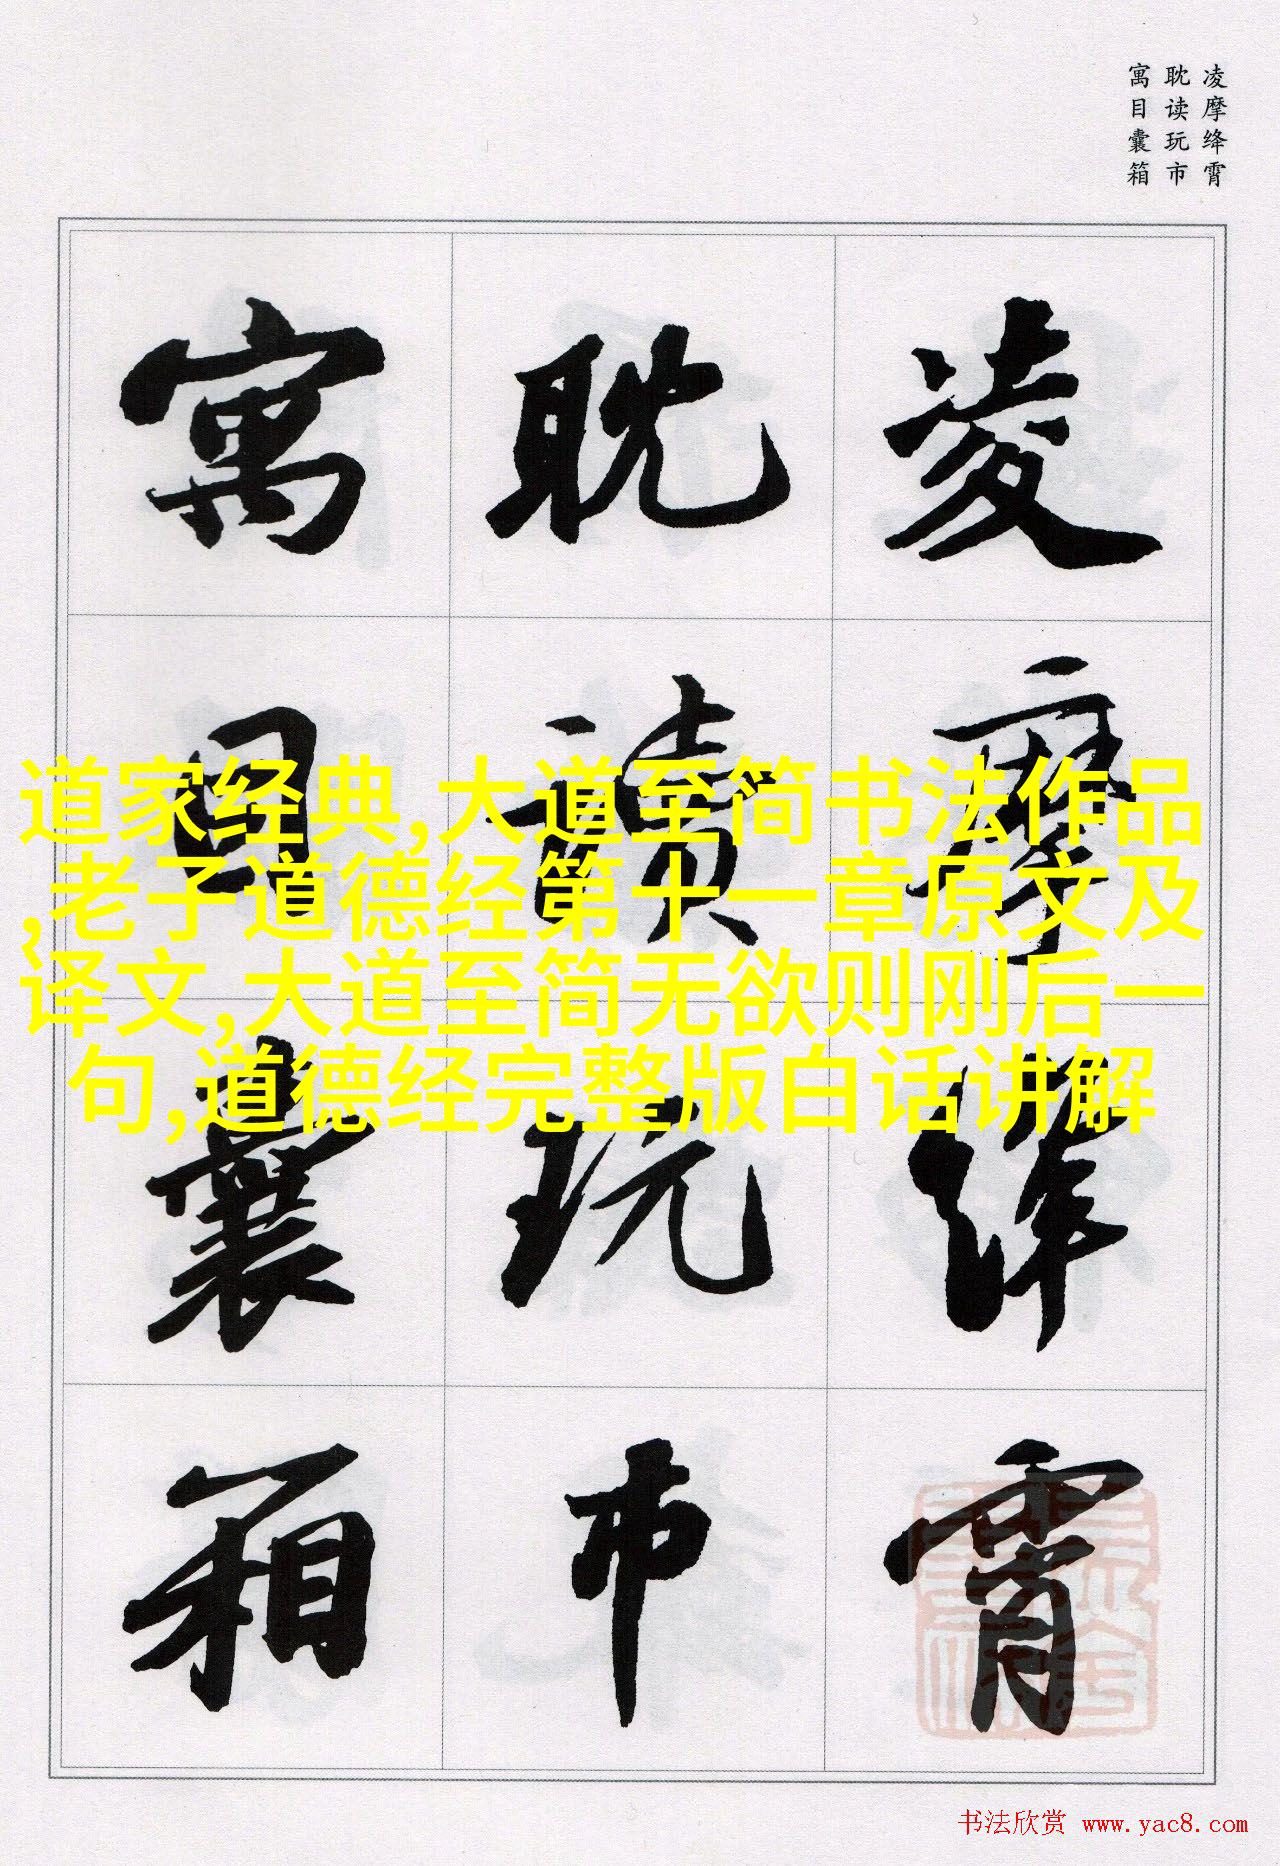 凌摩绛霄
耽读玩市
寓目囊箱
凌摩絳霄
耽讀玩市
寓目囊箱
道家经典,大道至简书法作品
,老子道德经第十一章原文及
译文,大道至简无欲则刚后一
句,道德经完整版白话讲解
书法欣赏 www.yac8.com